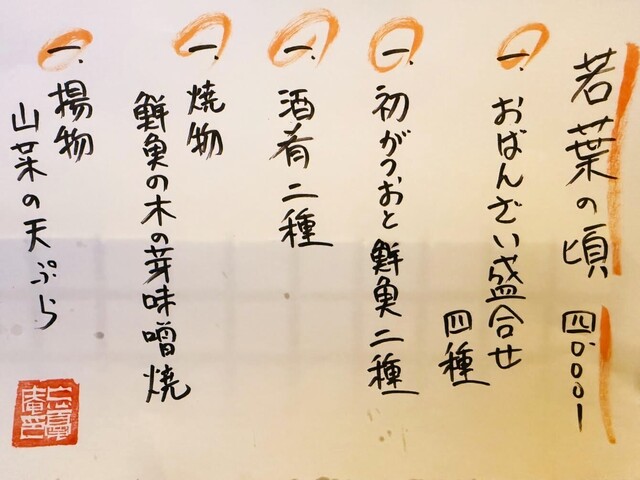 若葉の頃 四、〇〇〇ー
一、おばんざい盛合せ
四種
一、初がつおと鮮魚二種
一、酒肴二種
一、焼物
鮮魚の木の芽味噌焼
一、揚物
山菜の天ぷら